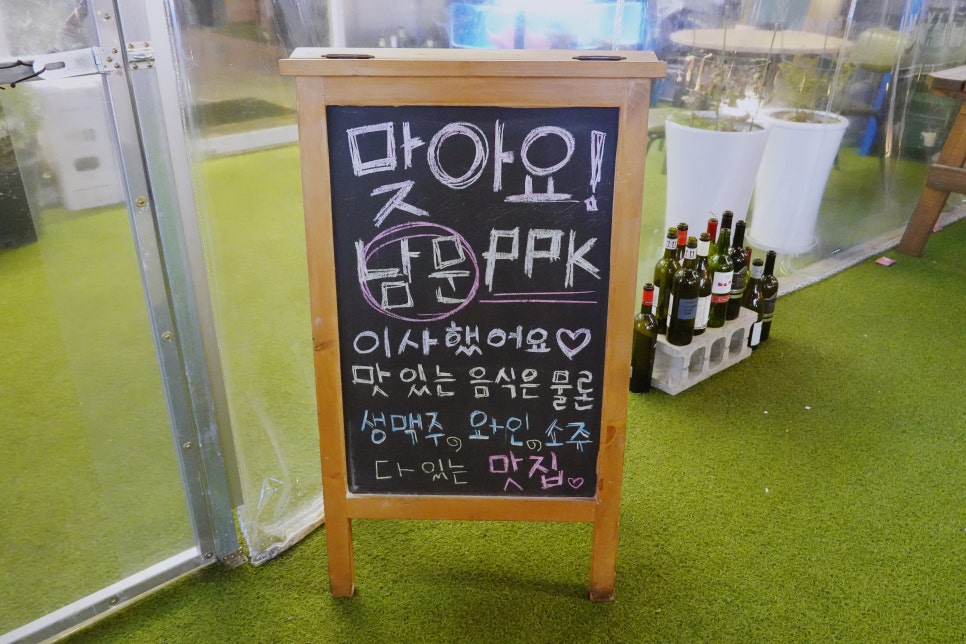 맞아요!
남문 PPK
이사했어요♡
맛있는 음식은 물론
생맥주, 와인, 소주
다 있는 맛집♡